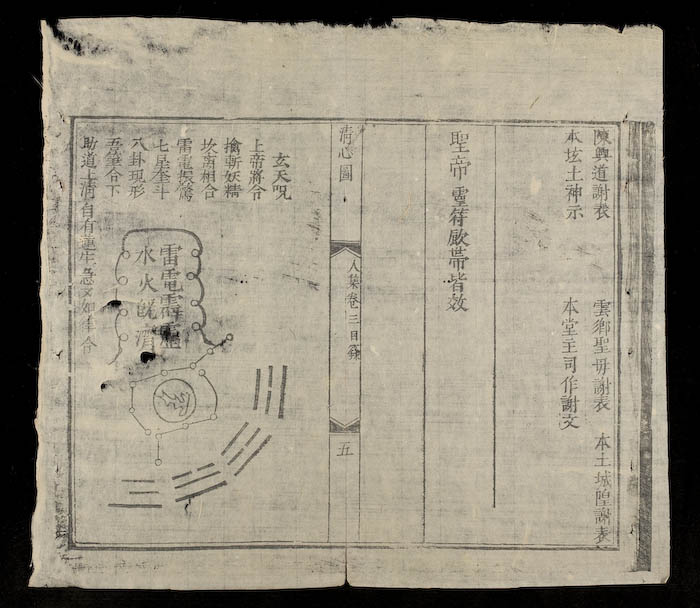 陳興道謝表 雲鄉聖母謝表 本土城隍謝表
本垓土神示 本堂主司作謝文
聖帝 靈符厥帶皆效
清心圖 人集卷三目錄 五
玄天呪
上帝將令
擒斬妖精
坎离相合
雷電振驚
七星奎斗
八卦現形
吾筆令下
助道上清自有蓮生急 如律令
雷電霹靂
水火既濟